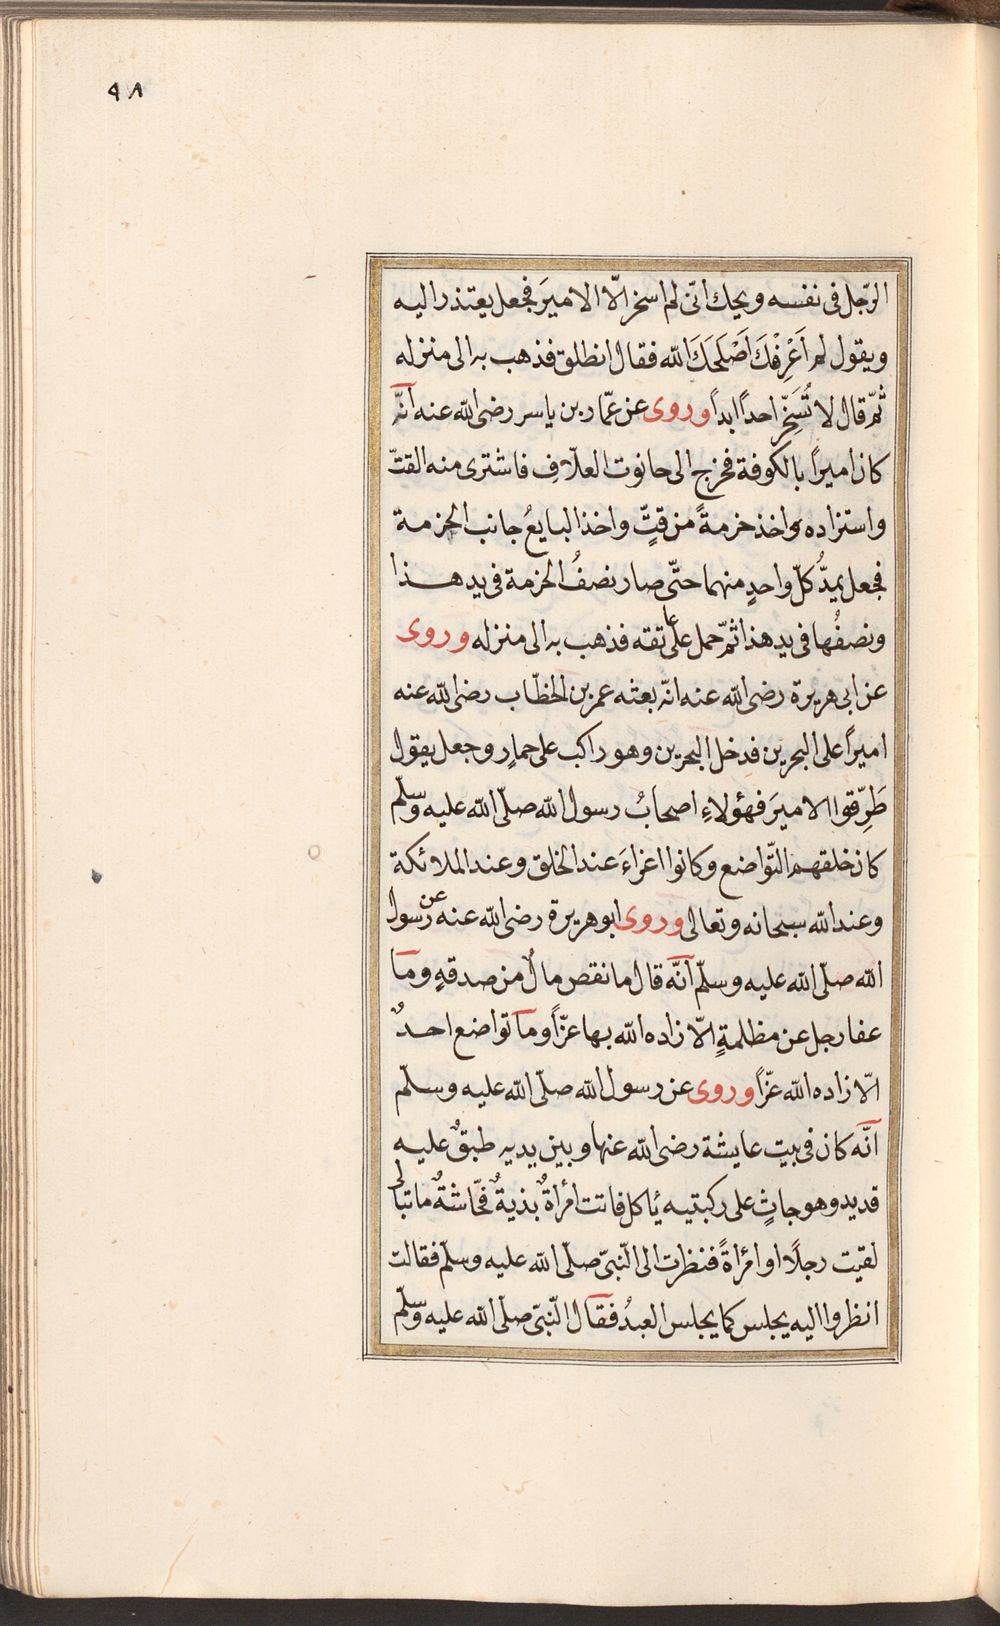 ٩٨
الرّجل فى نفسه ويحك انّى لم اسخر الّا الاميرَ فجعل يعتذر اليه
ويقول لم اَعْرِفْكَ اَصْلَحَكَ الله فقال انطلق فذهب به الى منزله
ثمّ قال لا تُسَخِّر احداً ابداً وروى عن عمّار بن ياسر رضى الله عنه انّه
كان اميراً بالكوفة فخرج الى حانوت العلّافِ فاشترى منه القتّ
واستزاده واخذ خرمةً من قتٍّ واخذ البايعُ جانب الحزمة
فجعل يمدُّ كلّ واحدٍ منهما حتّى صار نصفُ الحزمة فى يد هذا
ونصفُها فى يد هذا ثمّ حمل على عاتقه فذهب به الى منزله وروى
عن ابى هريرة رضى الله عنه انّه بعثه عمر بن الخطّاب رضى الله عنه
اميراً على البحرين فدخل البحرين وهو راكب على حمارٍ وجعل يقول
طَرِّقوا الاميرَ فهؤلاءِ اصحابُ رسول الله صلّى الله عليه وسلّم
كان خلقهم التّواضع وكانوا اعزاءَ عند الخلق وعند الملائكة
وعند الله سبحانه وتعالى وروى ابو هريرة رضى الله عنه عن رسول
الله صلّى الله عليه وسلّم انّه قال ما نقص مالٌ من صدقةٍ وما
عفا رجل عن مظلمةٍ الّا زاده الله بها عزّاً وما تواضع احدٌ
الّا زاده الله عزّاً وروى عن رسول الله صلّى الله عليه وسلّم
انّه كان فى بيت عايشة رضى الله عنها وبين يديه طبقٌ عليه
قديد وهو جاثٍ على ركبتيه يأكل فاتت امرأةٌ بذيةٌ فحّاشةٌ ما تبالى
لقيت رجلًا او امرأةً فنظرت الى النّبىّ صلّى الله عليه وسلّم فقالت
انظروا اليه يجلس كما يجلس العبدُ فقال النّبىّ صلّى الله عليه وسلّم